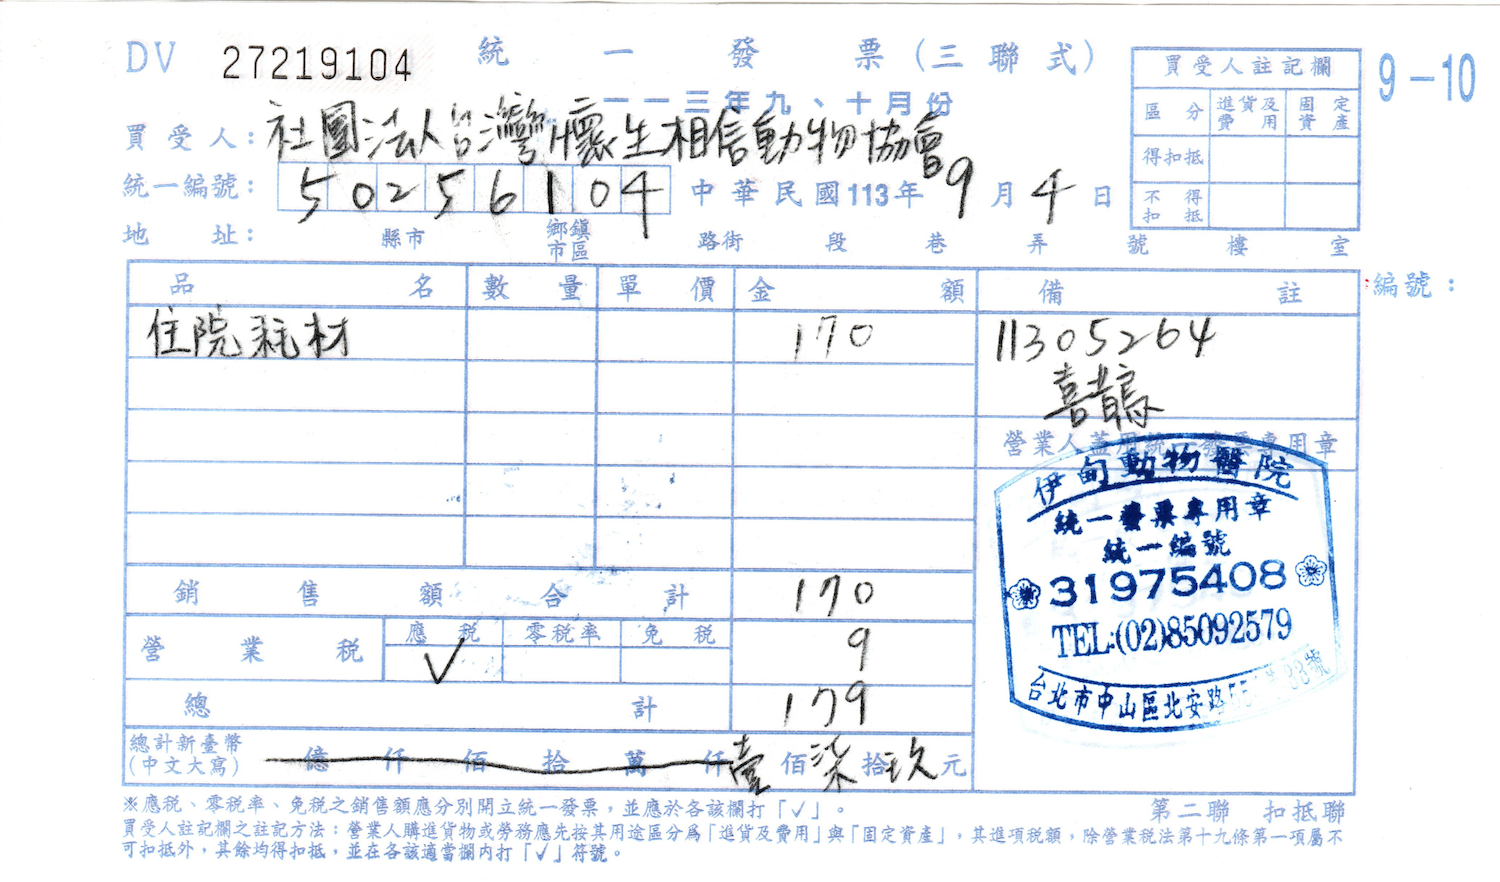 DV 27219104 統一發票(三聯式)
一一三年九、十月份
9-10
買受人註記欄
區分 進貨及費用 固定資產
得扣抵
不得扣抵
買受人: 社團法人台灣懷生相信動物協會
統一編號: 50256104 中華民國113年9月4日
地址: 縣市 鄉鎮市區 路街 段 巷 弄 號 樓 室
品名 數量 單價 金額 備註 編號:
住院耗材 170 11305264
喜鵲
營業人蓋用統一發票專用章
伊甸動物醫院
統一發票專用章
統一編號
31975408
TEL:(02)85092579
台北市中山區北安路 號
銷售額合計 170
營業稅 應稅 零稅率 免稅 9
✓
總計 179
總計新臺幣(中文大寫) 億仟佰拾萬仟壹佰柒拾玖元
※應稅、零稅率、免稅之銷售額應分別開立統一發票,並應於各該欄打「✓」。
第二聯 扣抵聯
買受人註記欄之註記方法:營業人購進貨物或勞務應先按其用途區分為「進貨及費用」與「固定資產」,其進項稅額,除營業稅法第十九條第一項屬不
可扣抵外,其餘均得扣抵,並在各該適當欄內打「✓」符號。